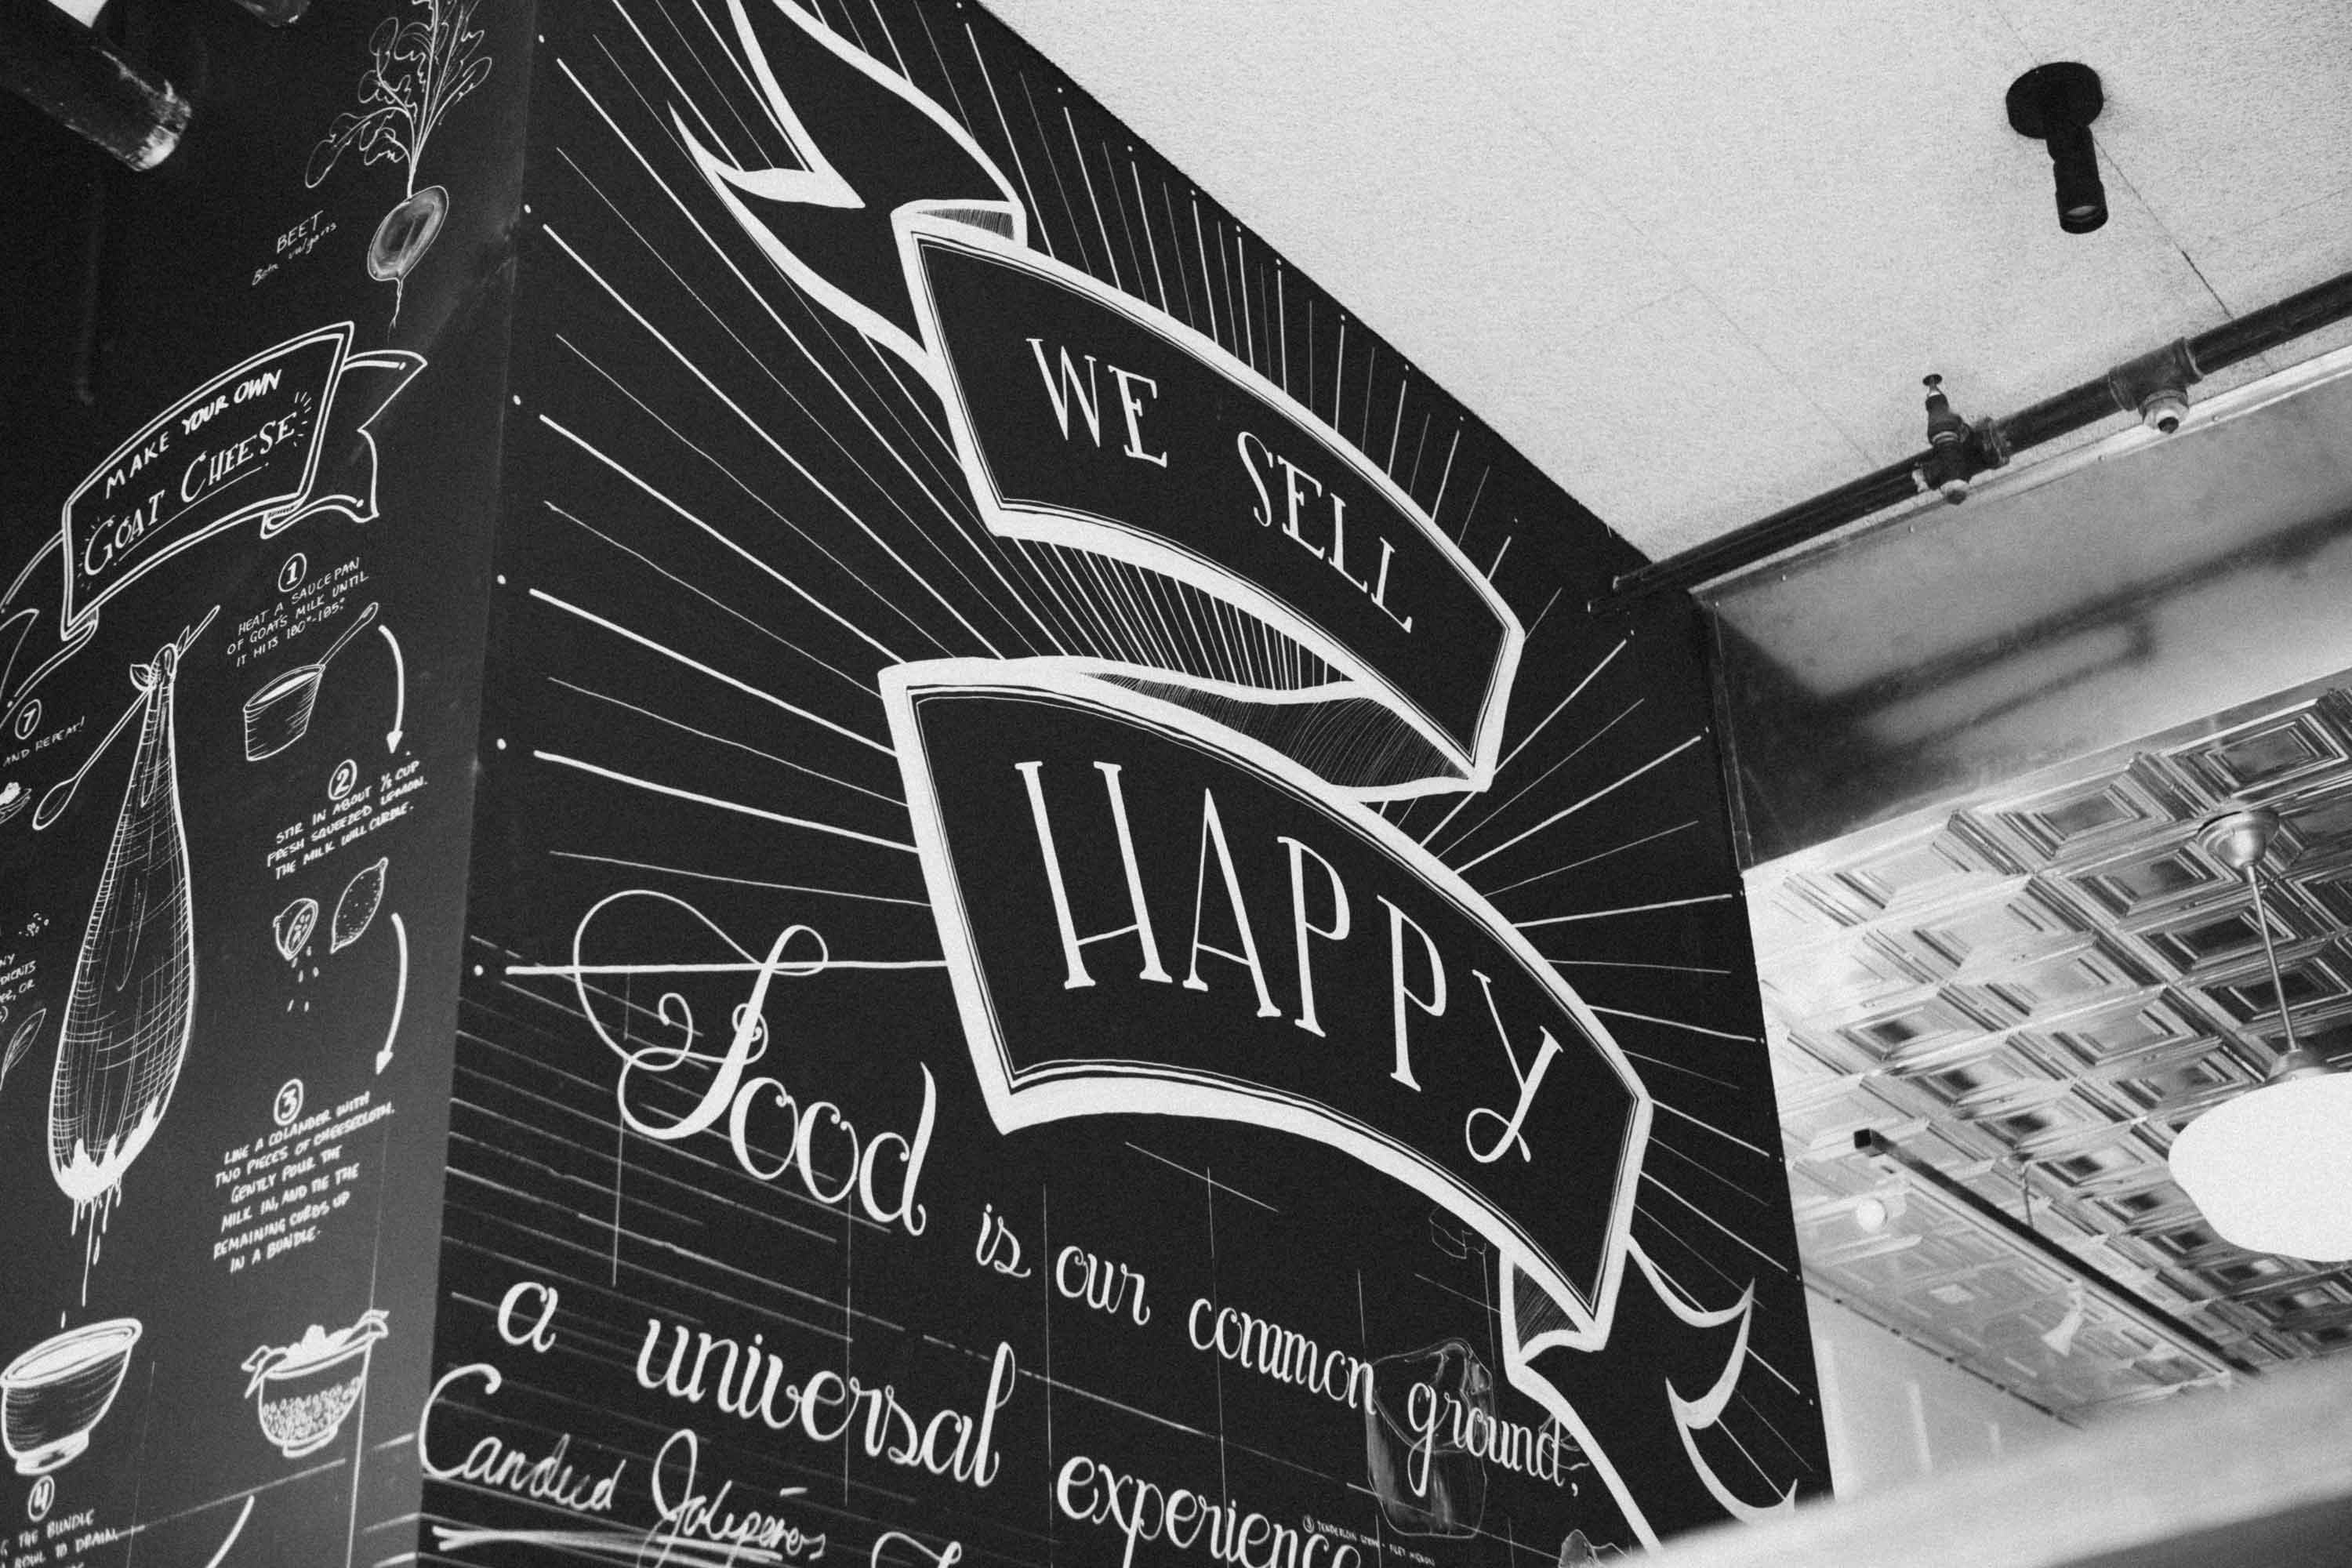 BEET
MAKE YOUR OWN
GOAT CHEESE
1
HEAT A SAUCEPAN
OF GOATS MILK UNTIL
IT HITS 180°-185°
7
AND REPEAT!
2
STIR IN ABOUT ⅓ CUP
FRESH SQUEEZED LEMON.
THE MILK WILL CURDLE.
3
LINE A COLANDER WITH
TWO PIECES OF CHEESECLOTH.
GENTLY POUR THE
MILK IN, AND TIE THE
REMAINING CURDS UP
IN A BUNDLE.
4
THE BUNDLE
BOWL TO DRAIN
WE SELL
HAPPY
Food is our common ground,
a universal experience
Candied Jalapeños